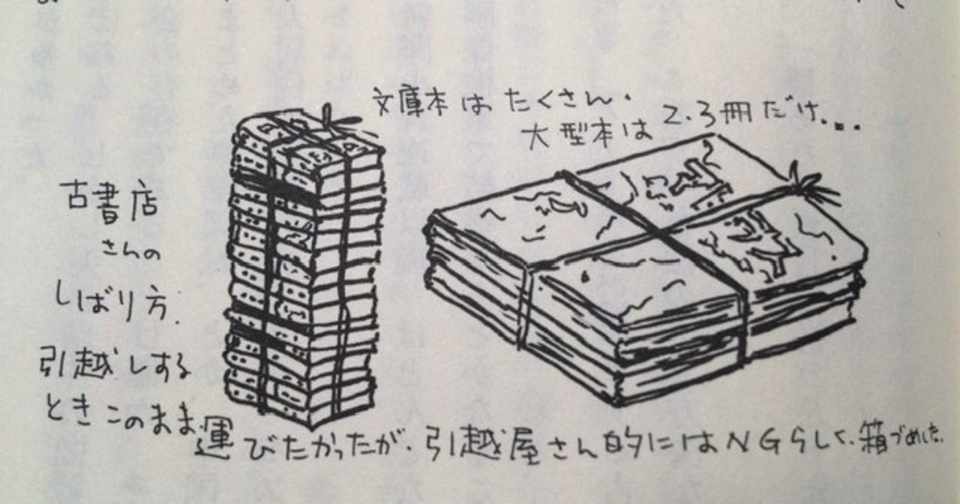 文庫本はたくさん.
大型本は 2.3冊だけ...
古書店
さんの
しばり方.
引越しする
ときこのまま運びたかったが. 引越屋さん的にはNGらしく. 箱づめした.